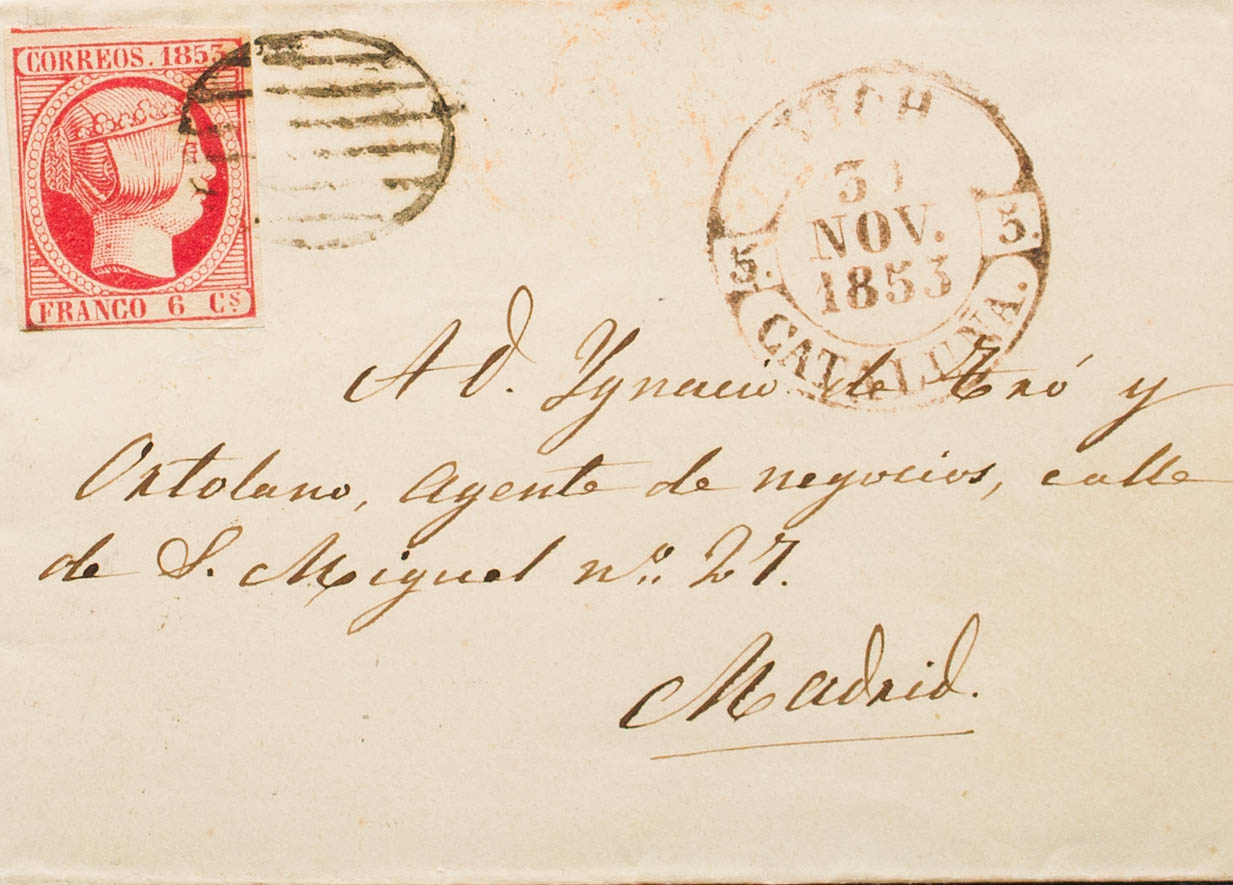 CORREOS. 1853
FRANCO 6 Cs
VICH
30
NOV.
1853
5.
5.
CATALUÑA.
A D. Ygnacio de Tró y
Ortolano, Agente de negocios, calle
de S. Miguel nº. 27.
Madrid.